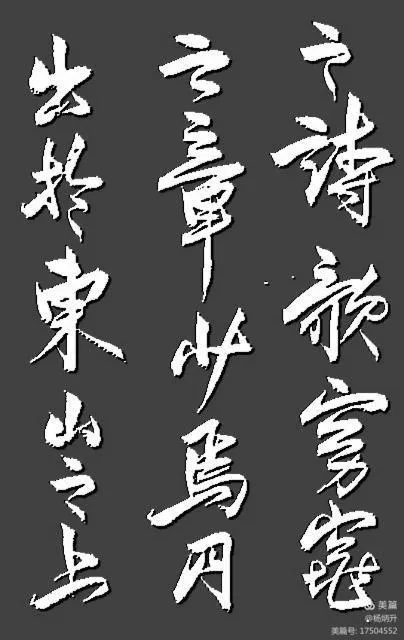 之詩歌窈窕
之章少焉月
出於東山之上
美篇
@杨炳升
美篇号: 17504552